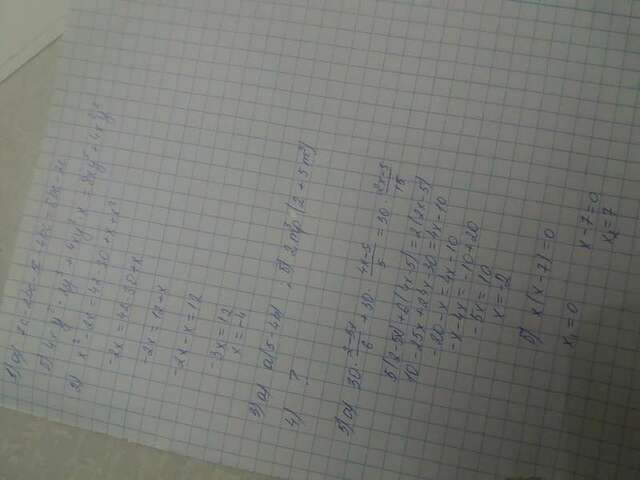 1) а)
б) 4xy² · 2y³ + 4xy² · x = 8xy⁵ + 4x²y²
2) x² - 2x = 42 - 30 + x + x²
-2x = 42 - 30 + x
-2x = 12 + x
-2x - x = 12
-3x = 12
x = -4
3) а) a(5 - 4b) , б) 2m³p (2 + 5m³)
4) ?
5) а) 30 · (2-5x)/6 + 30 · (4x-5)/5 = 30 · (2x-5)/15
5(2-5x) + 6(4x-5) = 2(2x-5)
10 - 25x + 24x - 30 = 4x - 10
-20 - x = 4x - 10
-x - 4x = -10 + 20
-5x = 10
x = -2
б) x(x - 7) = 0
x₁ = 0 x - 7 = 0
x₂ = 7